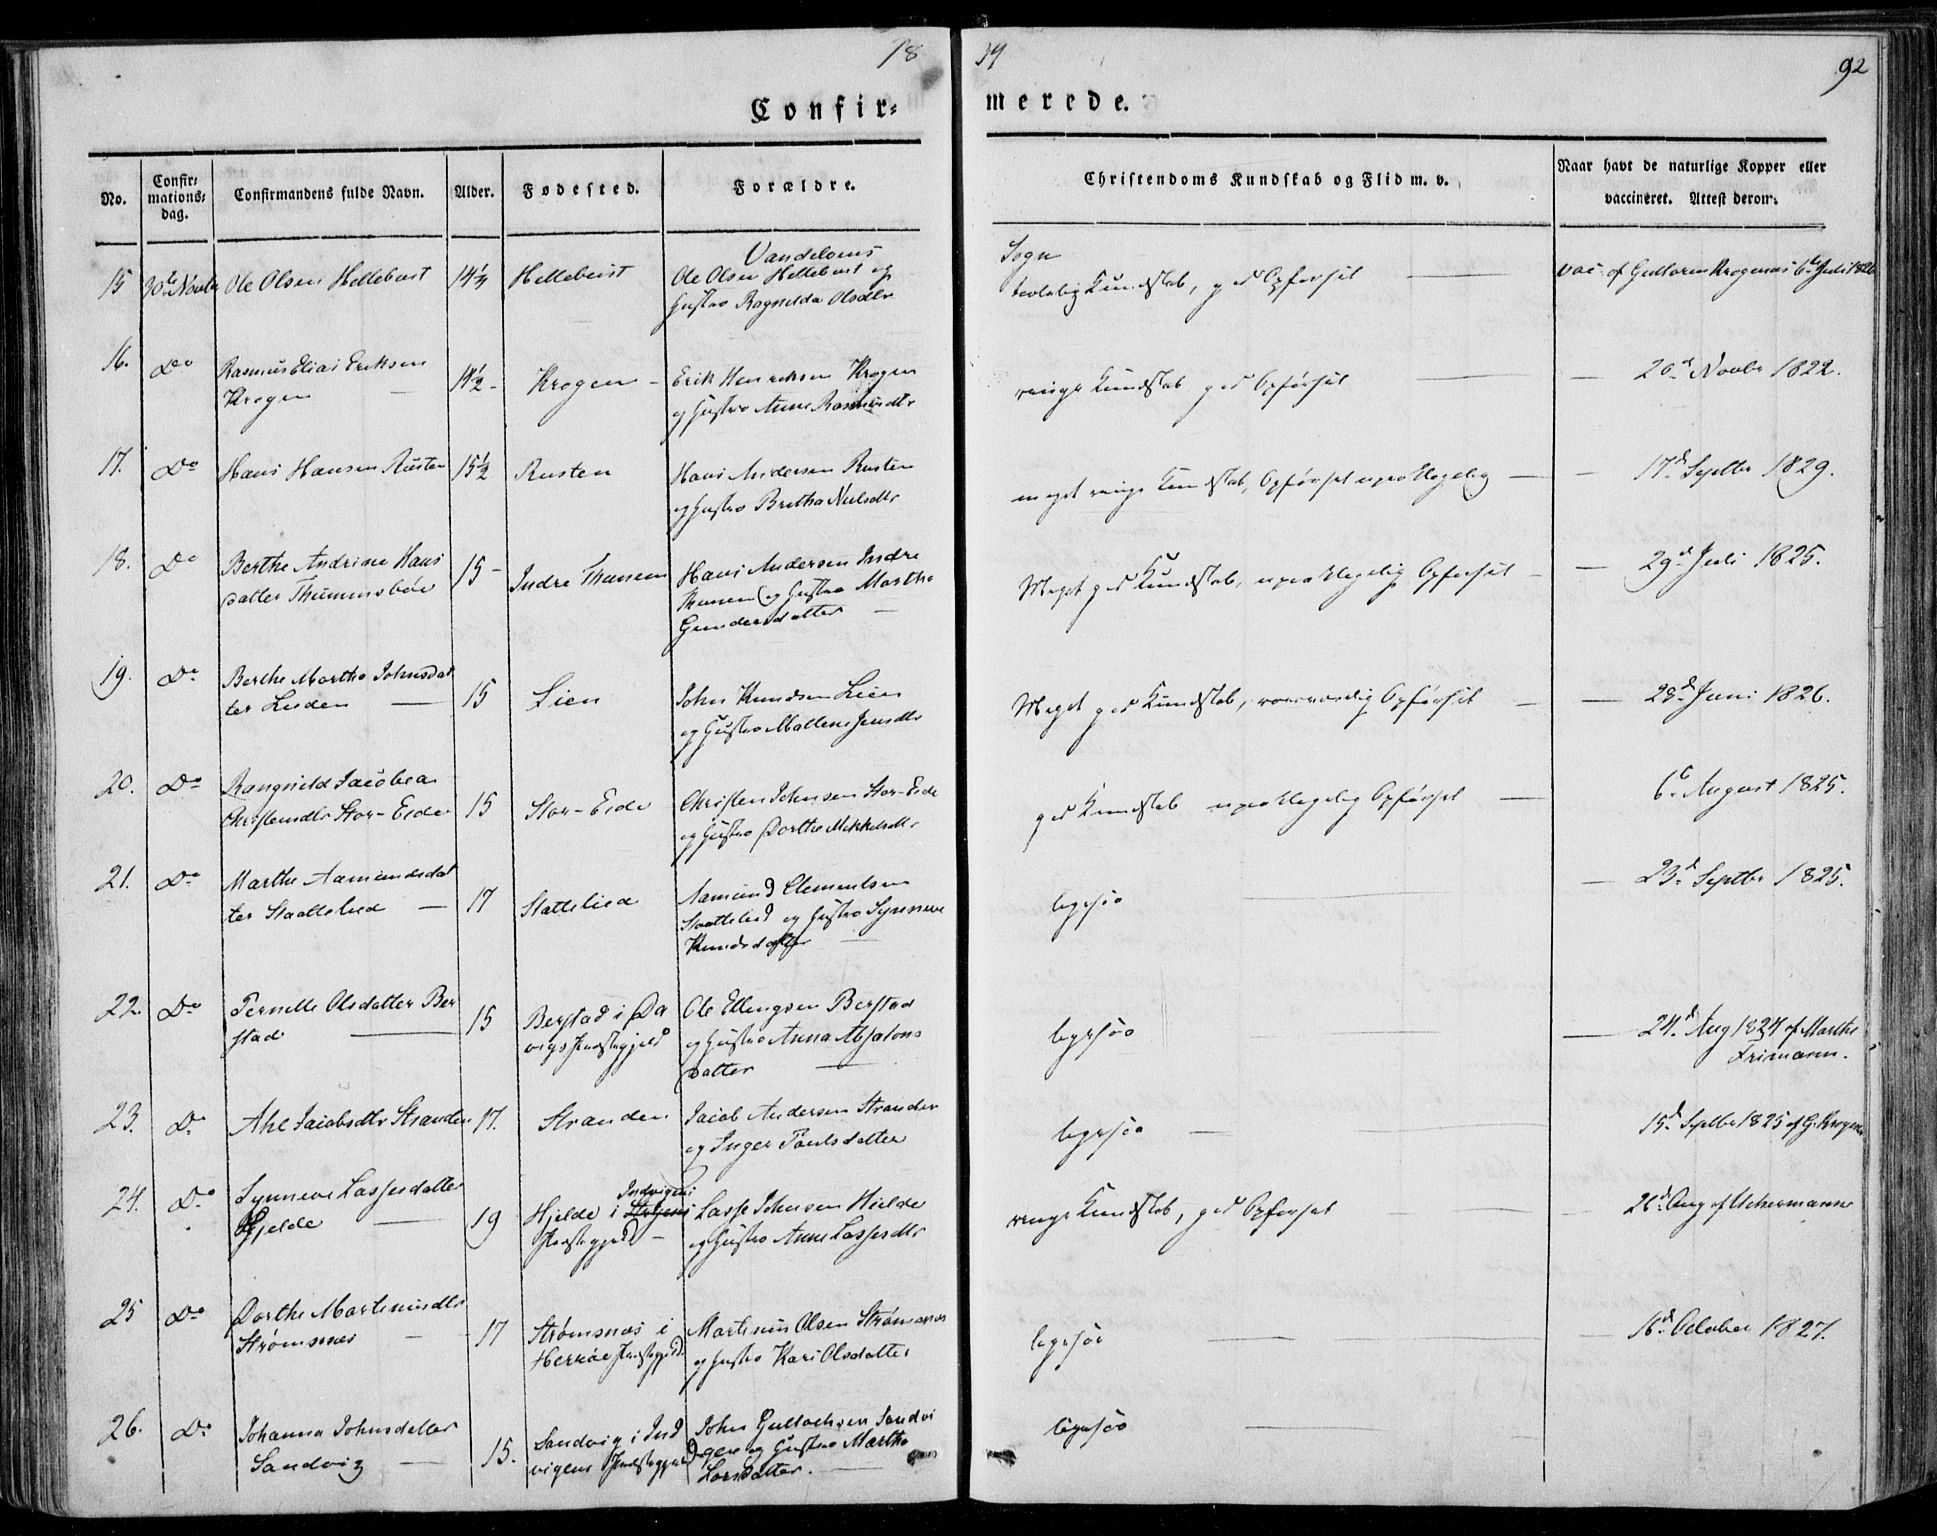 18
34
92
Confir=
merede.
No.
Confir=
mations=
dag.
Confirmandens fulde Navn.
Alder.
Fødested.
Forældre.
Christendoms Kundskab og Flid m. v.
Naar havt de naturlige Kopper eller
vaccineret. Attest derom.
Vandeloens
Sogn
15 30te Novbr Ole Olsen Hellebust 14½ Hellebust Ole Olsen Hellebust og
Hustro Ragnilda Olsdtr
Kundskab, god Opførsel
vac. af Guttorm Krognæs 6te Juli 1826
16. Do Rasmus Elias Eriksen
Krogen
14½ - Krogen - Erik Henriksen Krogen
og Hustro Anne Rasmusdtr
ringe Kundskab god Opførsel
— 20d Novbr 1822.
17. Do Hans Hansen Rusten 15½ Rusten Hans Andersen Rusten
og Hustro Brithe Nielsdtr
meget ringe Kundskab, Opførsel upaaklagelig —
— 17d Septbr 1829.
18. Do Berthe Andrine Hans
datter Thunnsbøe
15 - Indre Thunem Hans Andersen Indre
Thunem og Hustro Marthe
Gundersdatter —
Meget god Kundskab, upaaklagelig Opførsel —
— 29d Juli 1825.
19. Do Berthe Marthe Johnsdat
ter Lieden —
15 Lien John Knudsen Lien
og Hustro Mallene Jensdtr
Meget god Kundskab, roesværdig Opførsel —
— 28d Juni 1826.
20. Do Rangnild Jacobea
Christensdtr Stor-Eide
15 Stor-Eide Christen Johnsen Stor-Eide
og Hustro Dorthe Mikkelsdtr
god Kundskab upaaklagelig Opførsel —
6te August 1825.
21. Do Marthe Aamundsdat
ter Staattelied —
17 Slattelied Aamund Clementsen
Slaattelied og Hustro Synneve
Knudsdatter —
ligesaa
— 23d Septbr 1825.
22. Do Pernelle Olsdatter Ber
stad
15 Berstad i Da
vigs Præstegjeld
Ole Ellingsen Berstad
og Hustro Anna Absalons
datter —
ligesaa
— 24d Aug 1824 af Marthe
Frimann.
23. Do Ahe Jacobsdtr Stranden 17. Stranden Jacob Andersen Stranden
og Inger Poulsdatter
ligesaa
15d Septbr 1825 af G. Krognæs
24. Do Synneve Lassesdatter
Hjelde —
19 Hjelde i Indvigens
Præstegjeld -
Lasse Johnsen Hielde
og Hustro Anne Lassesdtr
ringe Kundskab, god Opførsel
— 26d Aug af Uchermann
25 Do Dorthe Martinusdtr
Strømsnæs —
17 Strømsnæs i
Herrøe Præstegjeld
Martinus Olsen Strømsnæs
og Hustro Kari Olsdatter
ligesaa
— 16d October 1827.
26. Do Johanna Johnsdatter
Sandvig —
15. Sandvig i Ind
vigens Præstegjeld
John Gullachsen Sandvi
gen og Hustro Marthe
Larsdatter. —
ligesaa